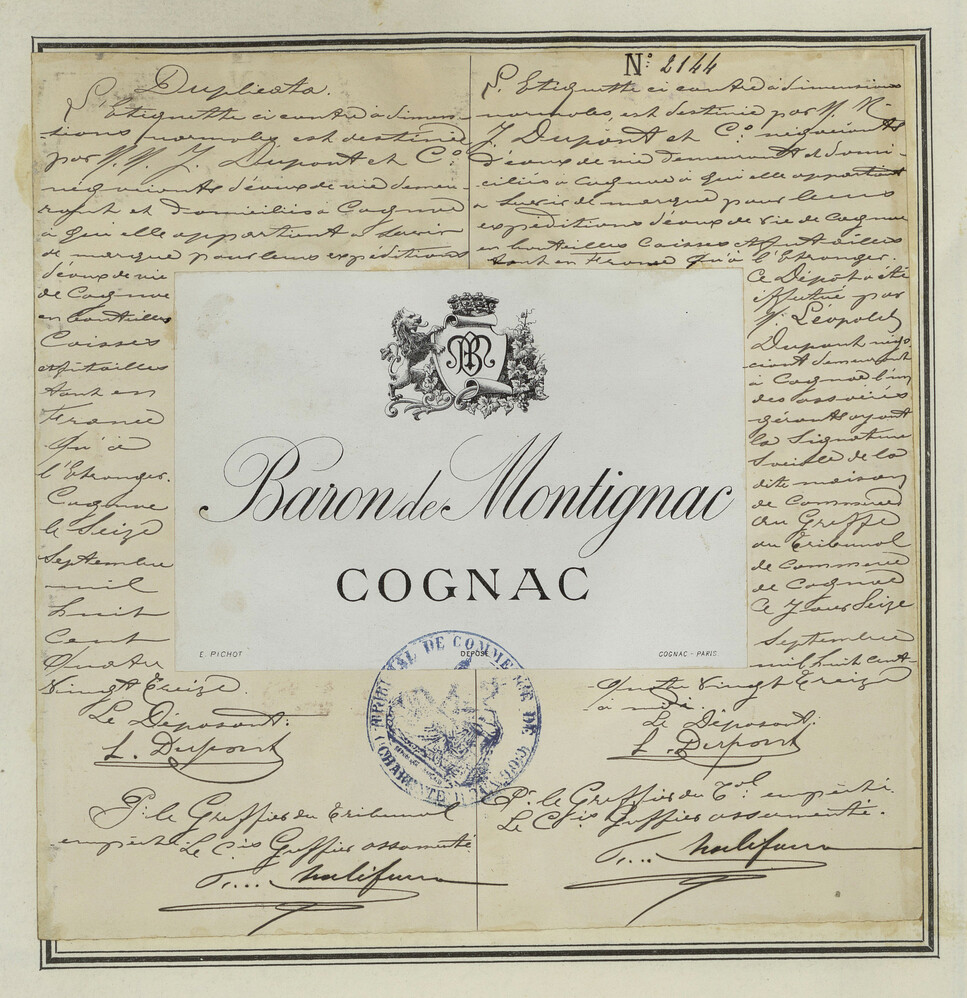 Duplicata.
L'Etiquette ci contre à dimen-
sions normales, est destinée
par M.M. J. Dupont et Cº:
négociants d'eaux de vie demeu-
rant et domiciliés à Cognac
à qui elle appartient à servir
de marque pour leurs expéditions
d'eaux de vie
de Cognac
en bouteilles
Caisses
et futailles
tant en
France
qu'à
l'Etranger.
Cognac
le Seize
Septembre
mil
huit
Cent
Quatre
Vingt Treize.
Le Déposant:
L. Dupont
Pr. le Greffier du Tribunal
empêché Le Cis Greffier assermenté
Nº: 2144
L'Etiquette ci contre à dimensions
normales, est destinée par M.M.
J. Dupont et Cº: négociants
d'eaux de vie demeurant et domi-
ciliés à Cognac à qui elle appartient
à servir de marque pour leurs
expéditions d'eaux de vie de Cognac
en bouteilles Caisses et futailles
tant en France qu'à l'Etranger.
Ce Dépôt a été
effectué par
M. Léopold
Dupont négo-
ciant demeurant
à Cognac l'un
des associés
gérants ayant
la Signature
Sociale de la
dite maison
de Commerce
au Greffe
du Tribunal
de Commerce
de Cognac
Ce Jour Seize
Septembre
mil huit cent
Quatre Vingt Treize
à midi
Le Déposant:
L. Dupont
Pr. le Greffier du Tal. empêché.
Le Cis Greffier assermenté.
BM
Baron de Montignac
COGNAC
E. PICHOT
DÉPOSÉ
COGNAC - PARIS
TRIBUNAL DE COMMERCE DE COGNAC
(CHARENTE)